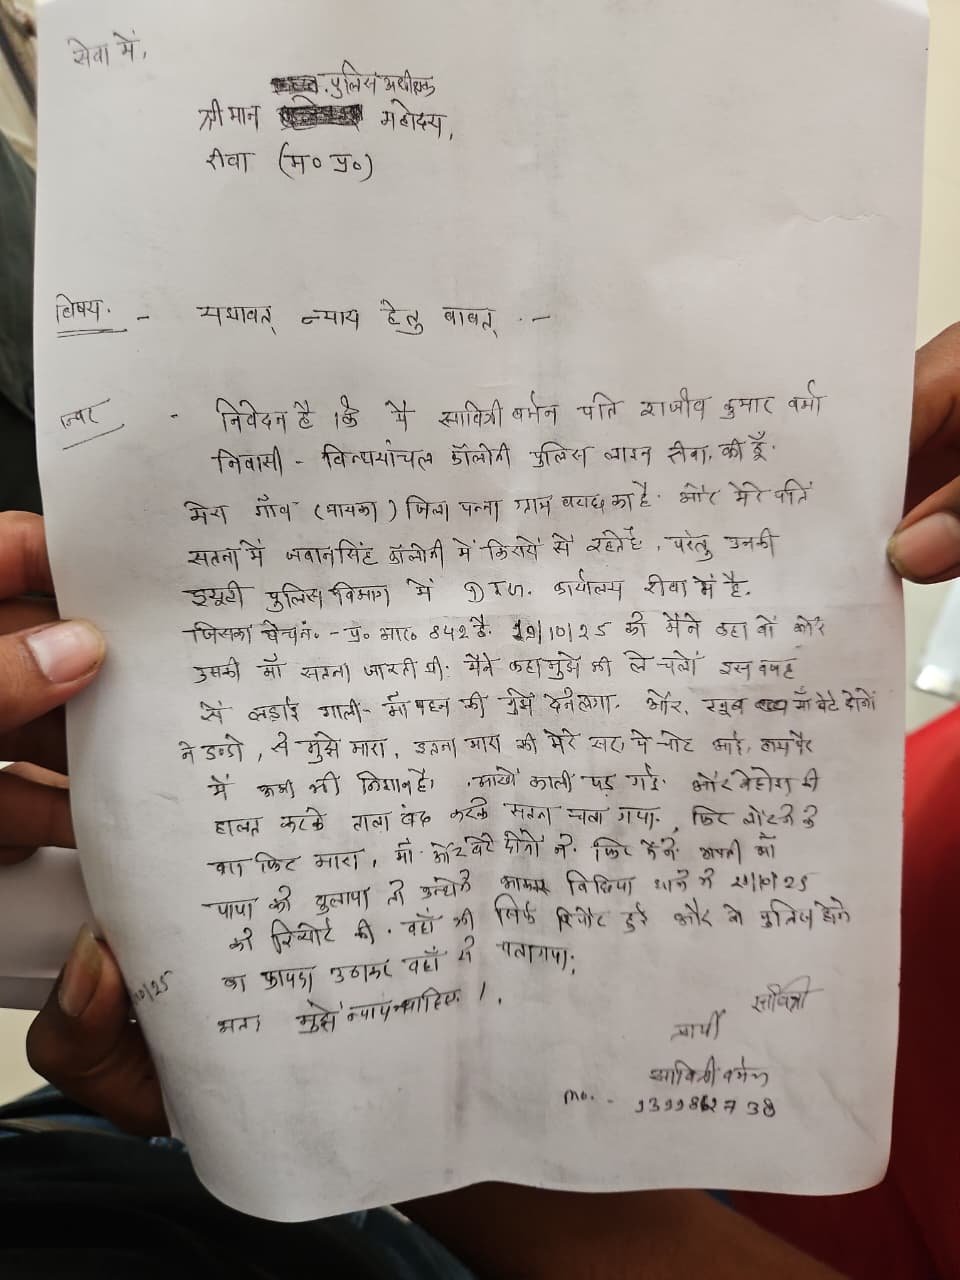 सेवा में,
पुलिस अधीक्षक
श्रीमान महोदय,
रीवा (म० प्र०)
विषय. - यथावत् न्याय हेतु बावत् . -
- निवेदन है कि मै सावित्री बर्मन पति राजीव कुमार वर्मा
निवासी - विन्ध्यांचल कॉलोनी पुलिस लाइन रीवा. की हूँ.
मेरा गाँव (मायका) जिला पन्ना ग्राम का है. और मेरे पति
सतना में जवानसिंह कॉलोनी में किराये से रहते है, परंतु उनकी
ड्यूटी पुलिस विभाग में कार्यालय रीवा में है.
जिसका - प्र. आर. 842 है. 19/10/25 को मैने कहा वो और
उसकी माँ सतना जा रही थी. मैने कहा मुझे भी ले चलो इस वजह
से लड़ाई गाली - माँ बहन की मुझे देने लगा. और, खूब माँ बेटे दोनों
ने डन्डो, से मुझे मारा, इतना मारा की मेरे सर, पे चोट आई, हाथ पैर
में अभी भी निशान है. आखे काली पड़ गई. और बेहोश की
हालत करके ताला बंद करके सतना चला गया, फिर लौटने के
बाद फिर मारा, माँ और बेटे दोनों ने. फिर मैंने अपनी माँ
पापा को बुलाया तो उन्होंने आकर बिछिया थाने में 21/10/25
को रिपोर्ट की. वहाँ भी सिर्फ रिपोर्ट हुई और वो पुलिस होने
का फायदा उठाकर वहाँ से चला गया;
अतः मुझे न्याय चाहिए.।.
/10/25
सावित्री
प्रार्थी
सावित्री बर्मन
mo. -